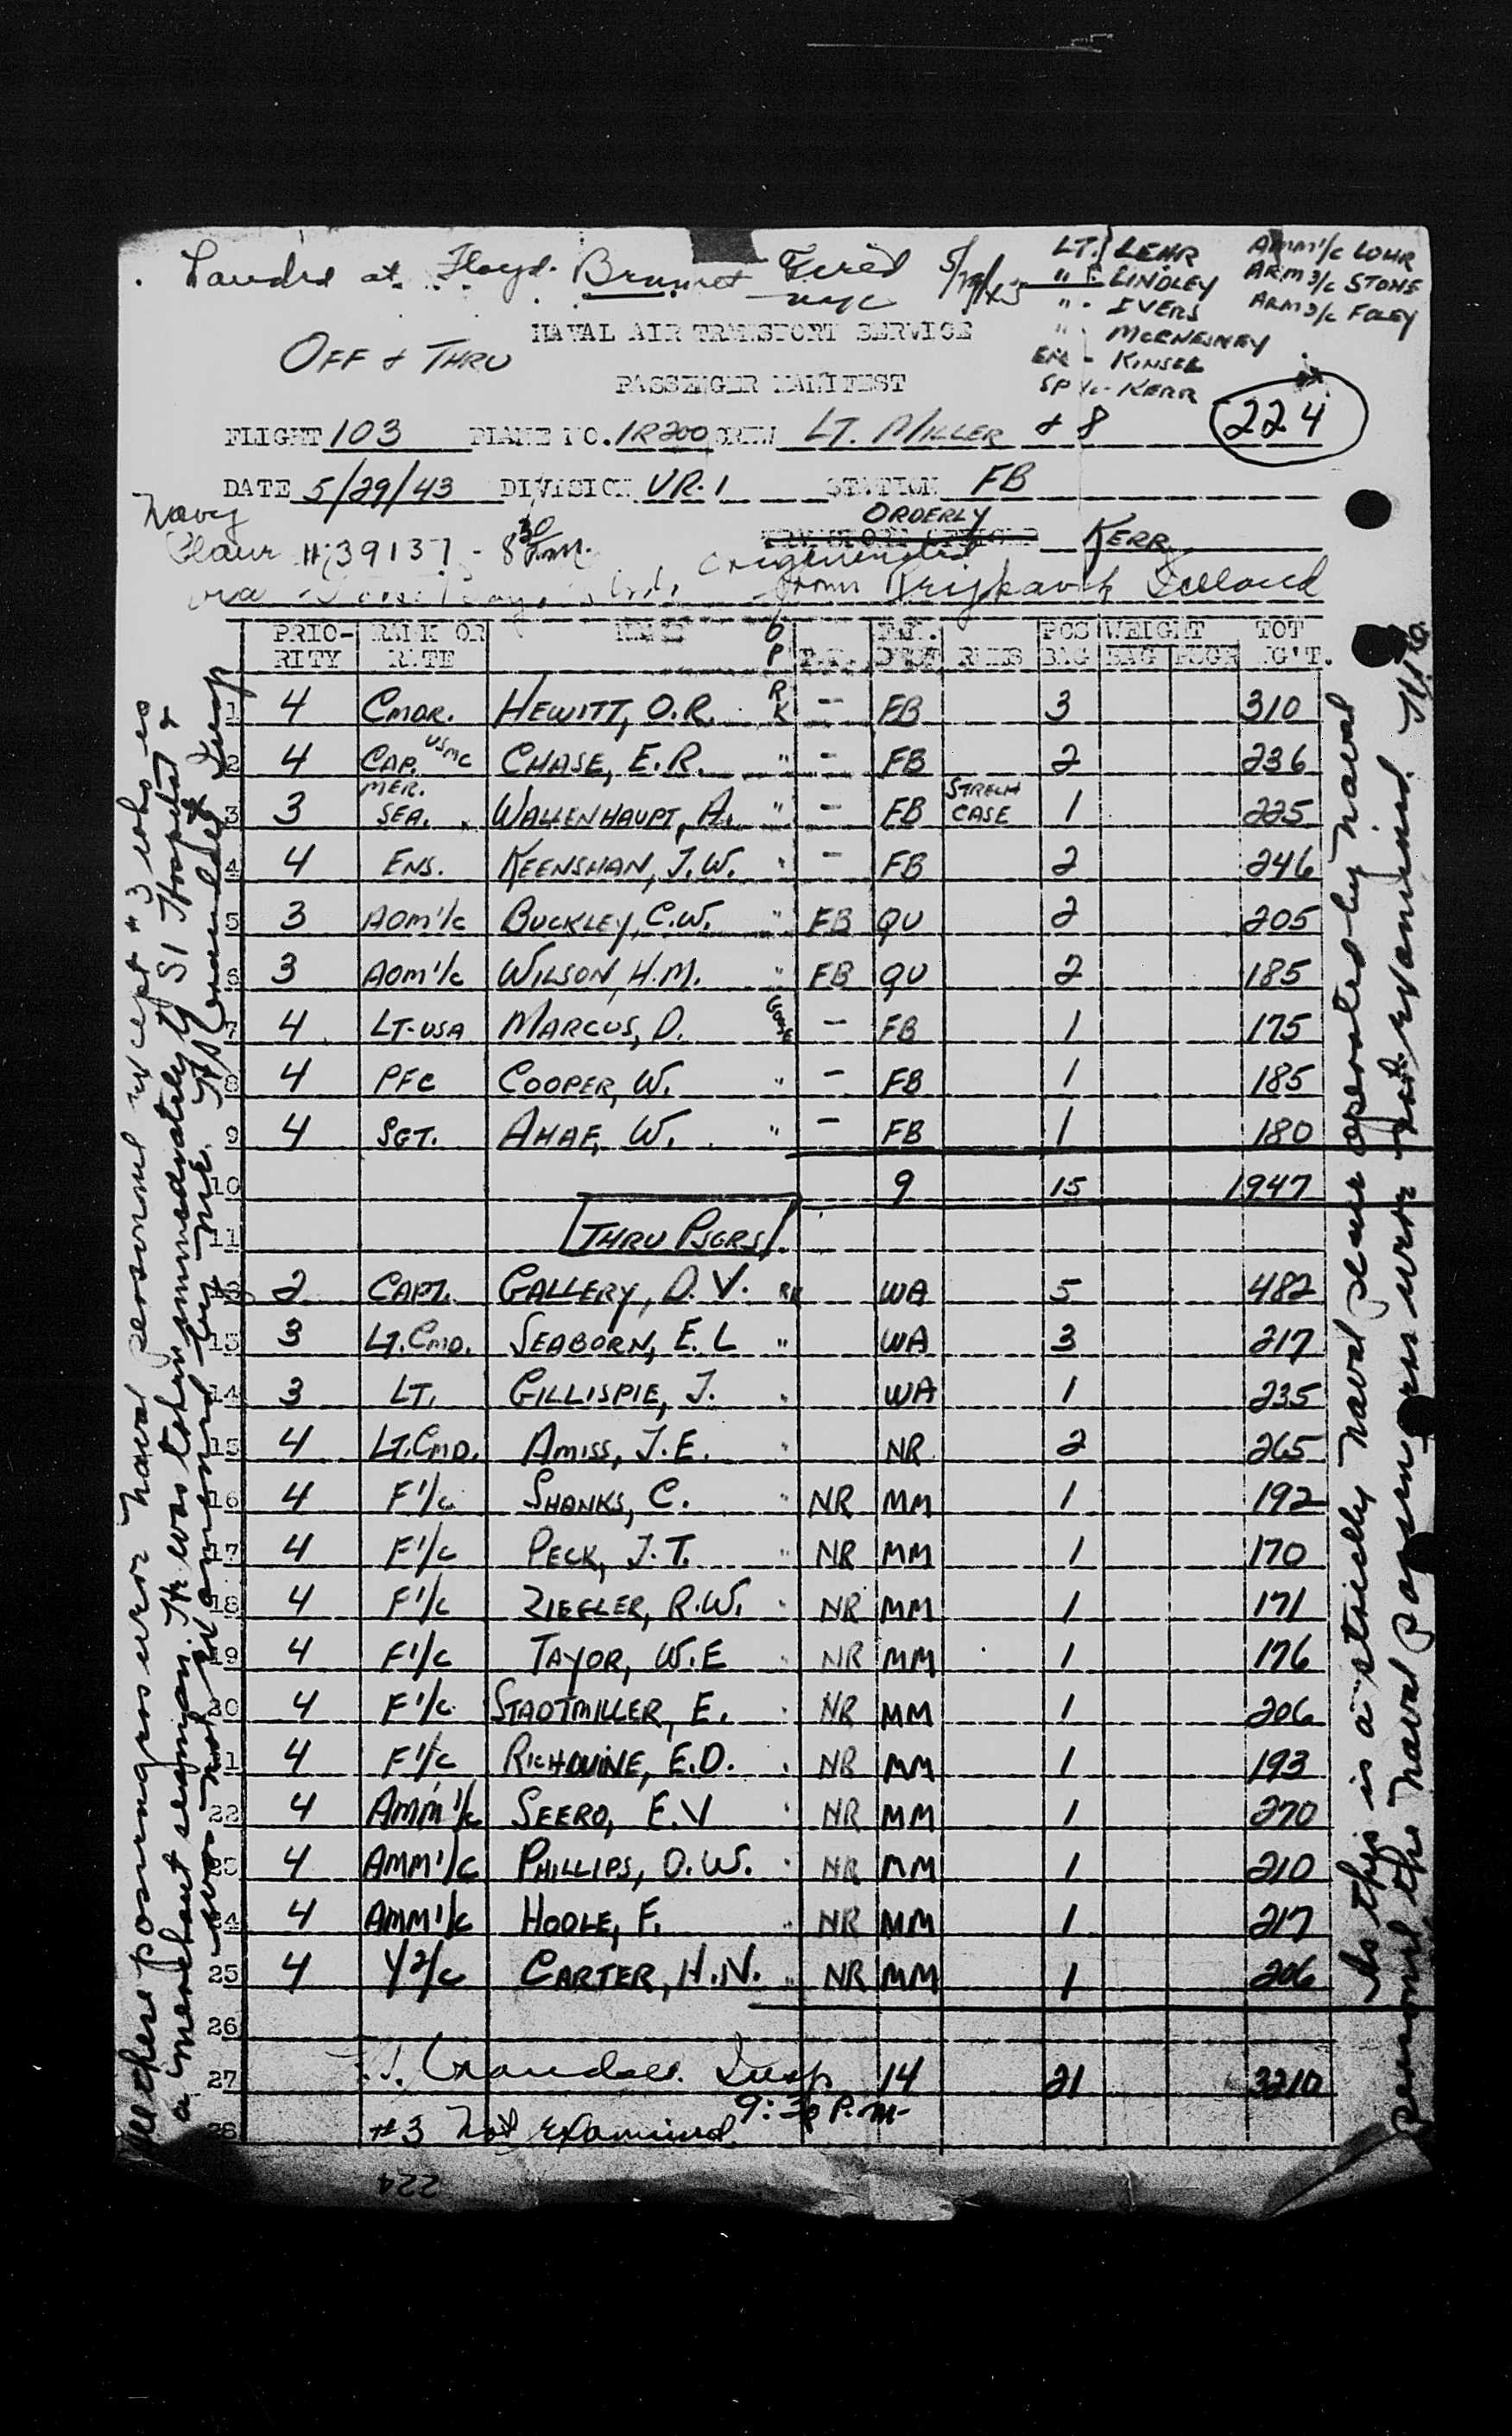 Landed at Floyd Bennet Field 5/29/43
NYC
LT. LEHR
" LINDLEY
" IVERS
" MCENESNEY
ENS - KINSEL
SP 1/c - KERR
AMM1/c LOHR
ARM3/c STONE
ARM3/c FOLEY
OFF & THRU
NAVAL AIR TRANSPORT SERVICE
PASSENGER MANIFEST
224
FLIGHT 103 PLANE NO. 1R200 CREW LT. MILLER + 8
DATE 5/29/43 DIVISION VR-1 STATION FB
Navy
Plane # 39137 - 8 30 P.M.
ORDERLY KERR
via
from Reykjavik Iceland
PRIORITY RANK OR RATE NAME OP P.T. DEST RMKS PCS BAG WEIGHT BAG PSGR TOT WG'T.
1 4 CMDR. HEWITT, O.R. RK - FB 3 310
2 4 CAP. USMC CHASE, E.R. " - FB 2 236
3 3 MER. SEA. WALLENHAUPT, A. " - FB STRECH CASE 1 225
4 4 ENS. KEENSHAN, J.W. " - FB 2 246
5 3 AOM1/c BUCKLEY, C.W. " FB QU 2 205
6 3 AOM1/c WILSON, H.M. " FB QU 2 185
7 4 LT-USA MARCUS, D. GOOSE - FB 1 175
8 4 PFC COOPER, W. " - FB 1 185
9 4 SGT. AHAF, W. " - FB 1 180
10 9 15 1947
11 THRU PSGRS
12 2 CAPT. GALLERY, D.V. RK WA 5 482
13 3 LT.CMD. SEABORN, E.L " WA 3 217
14 3 LT. GILLISPIE, J. " WA 1 235
15 4 LT.CMD. AMISS, J.E. " NR 2 265
16 4 F1/c SHANKS, C. " NR MM 1 192
17 4 F1/c PECK, J.T. " NR MM 1 170
18 4 F1/c ZIEGLER, R.W. " NR MM 1 171
19 4 F1/c TAYOR, W.E " NR MM 1 176
20 4 F1/c STADTMILLER, E. " NR MM 1 206
21 4 F1/c RICHWINE, E.D. " NR MM 1 193
22 4 AMM1/c SEERO, E.V " NR MM 1 270
23 4 AMM1/c PHILLIPS, D.W. " NR MM 1 210
24 4 AMM1/c HODLE, F. " NR MM 1 217
25 4 Y2/c CARTER, H.N. " NR MM 1 206
26
27 Crandall Insp 14 21 3210
28 #3 Not Examined 9:30 P.M.
224
All these passengers were naval personnel except #3 who is
a merchant seaman. He was taken immediately to SI Hospital &
was not examined by me. Crandall Insp
As this is a strictly naval plane operated by naval
personnel, the naval passengers were not examined.